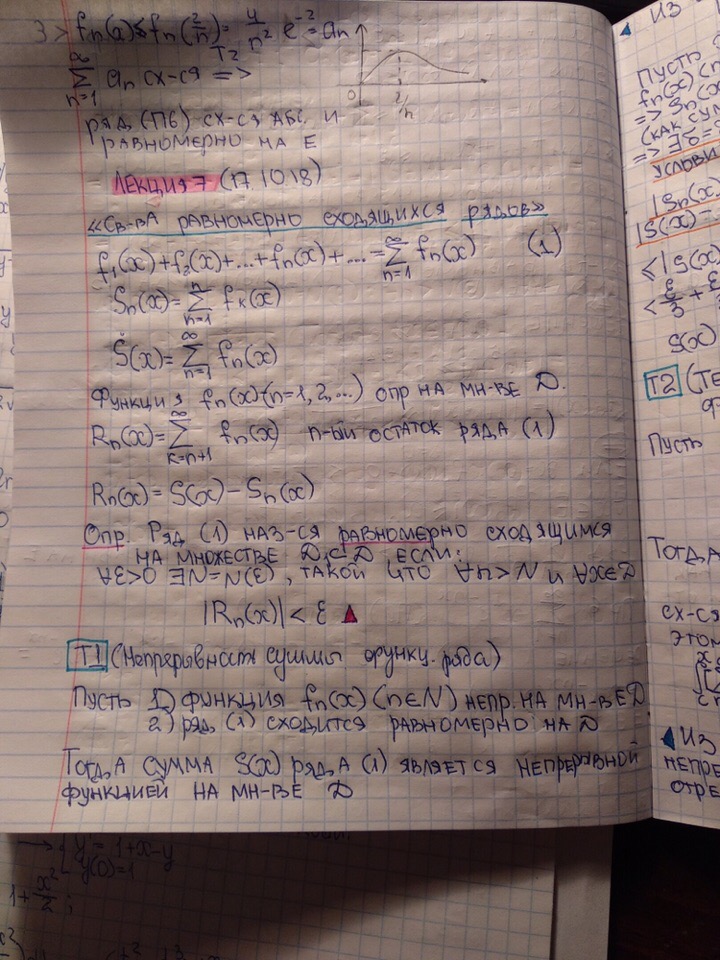 3> fₙ(x) ≤ fₙ(2/n) = 4/n² e⁻² = aₙ
T2
∞ Σ n=1 aₙ сх-ся =>
0 2/n
ряд (П6) сх-ся абс, и
равномерно на E
Лекция 7 (17.10.18)
«Св-ва равномерно сходящихся рядов»
f₁(x)+f₂(x)+...+fₙ(x)+...= ∞ Σ n=1 fₙ(x) (1)
Sₙ(x)= n Σ n=1 fₖ(x)
S(x)= ∞ Σ n=1 fₙ(x)
Функция fₙ(x) (n=1,2,...) опр на мн-ве D.
Rₙ(x)= ∞ Σ k=n+1 fₙ(x) n-ый остаток ряда (1)
Rₙ(x)=S(x)-Sₙ(x)
Опр. Ряд (1) наз-ся равномерно сходящимся
на множестве D₁⊂D если:
∀ε>0 ∃N=N(ε), такой что ∀n>N и ∀x∈D
|Rₙ(x)|<ε
T1 (Непрерывность суммы функц. ряда)
Пусть 1) функция fₙ(x) (n∈N) непр. на мн-ве D
2) ряд (1) сходится равномерно на D
Тогда сумма S(x) ряда (1) является непрерывной
функцией на мн-ве D
Из
Пусть
fₙ(x) (n
=> Sₙ(x)
(как сум
=> ∃δ=
услови
|Sₙ(x)
|S(x)-
≤|S(x)
<ε/3+ε
S(x)
T2 (Те
Пусть
Тогда
сх-ся
этом
Из
непре
отре
y'=1+x-y
y(0)=1
1+x²/2;